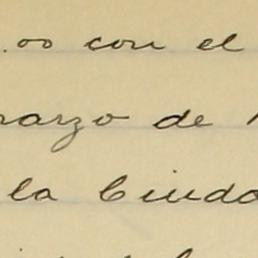 .00 con el
marzo de
la Ciuda